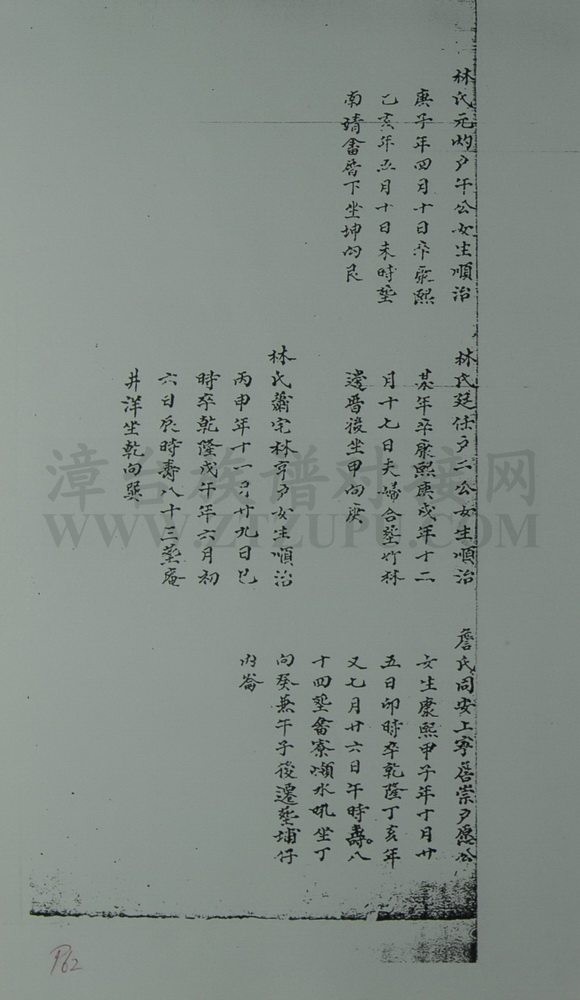 林氏元灼户午公女生順治
庚子年四月十日卒康熙
乙亥年五月十日未時塟
南靖畬厝下坐坤向艮
林氏廷仕户二公女生順治
年卒康熙庚戌年十二
月十七日夫婦合塟竹林
邊厝後坐甲向庚
林氏蕭宅林亨户女生順治
丙申年十一月廿九日巳
時卒乾隆戊午年六月初
六日辰時壽八十三塟庵
井洋坐乾向巽
詹氏同安上寧厝崇户愿公
女生康熙甲子年十月廿
五日卯時卒乾隆丁亥年
又七月廿六日午時壽八
十四塟畬寮瀨水吼坐丁
向癸兼午子後遷塟埔仔
内崙
漳台族谱对接网
WWW.ZTZUPU.COM
P62